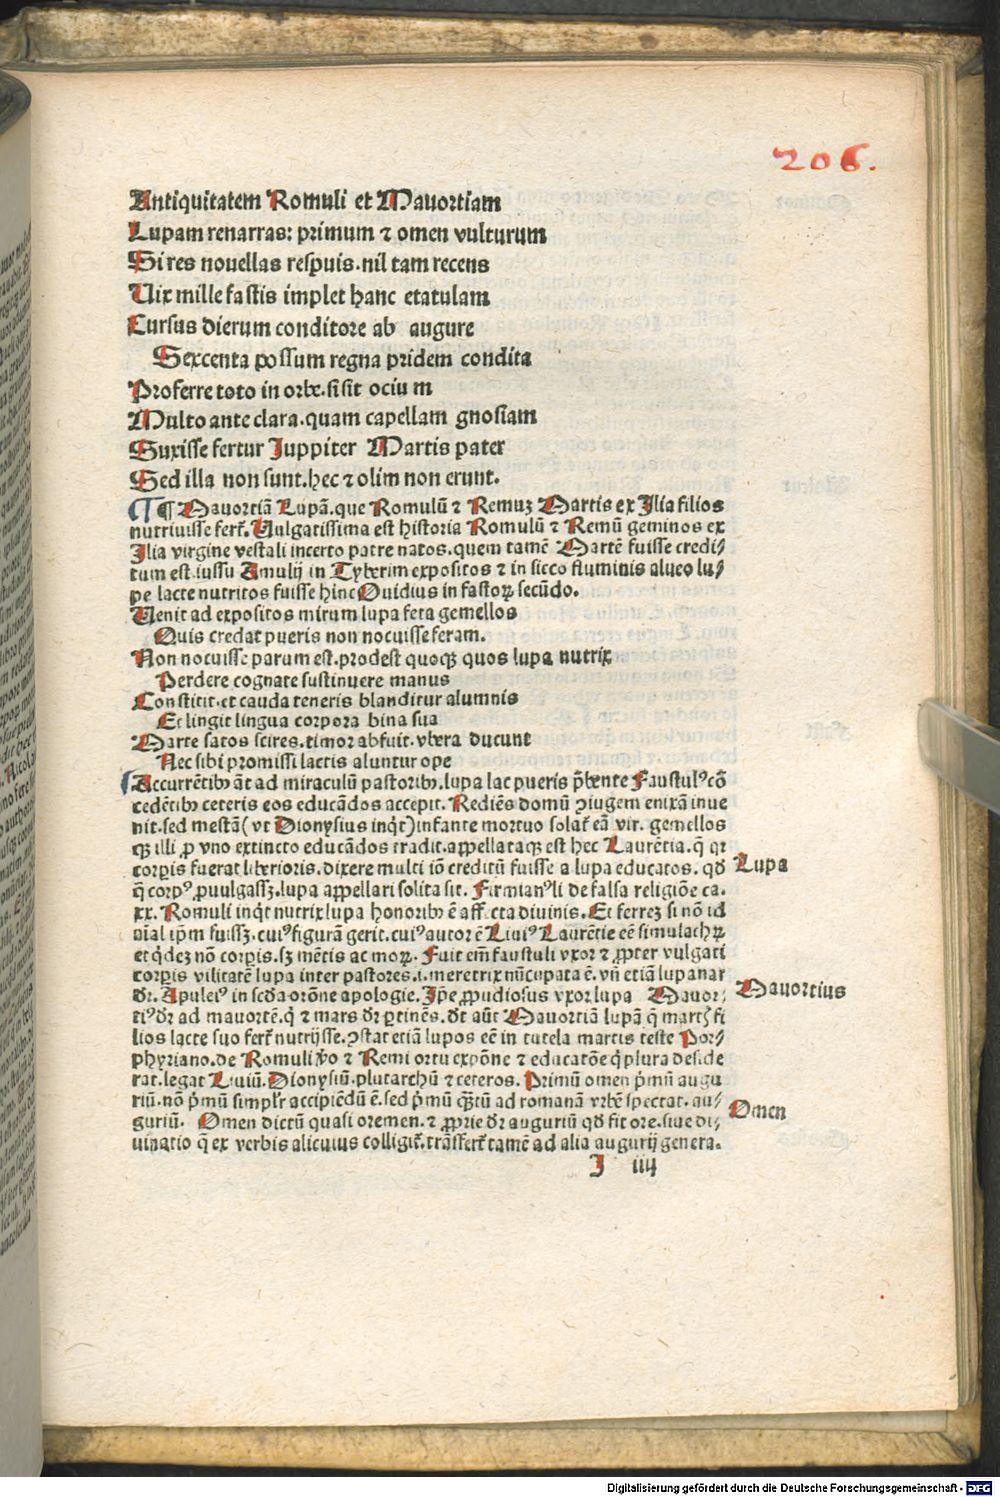 206.
Antiquitatem Romuli et Mauortiam
Lupam renarras: primum ⁊ omen vulturum
Si res nouellas respuis.nil tam recens
Uix mille fastis implet hanc etatulam
Cursus dierum conditore ab augure
Sexcenta possum regna pridem condita
Proferre toto in orbe.si sit ocium
Multo ante clara.quam capellam gnosiam
Suxisse fertur Juppiter Martis pater
Sed illa non sunt.hec ⁊ olim non erunt.
¶ Mauortiā Lupā.que Romulū ⁊ Remuʒ Martis ex Ilia filios
nutriuisse fert᷑. Uulgatissima est historia Romulū ⁊ Remū geminos ex
Ilia virgine vestali incerto patre natos.quem tamē Martē fuisse credi⸗
tum est.iussu Amulij in Tyberim expositos ⁊ in sicco fluminis alueo lu⸗
pe lacte nutritos fuisse hinc Ouidius in fastoꝝ secūdo.
Uenit ad expositos mirum lupa feta gemellos
Quis credat pueris non nocuisse feram.
Non nocuisse parum est.prodest quoqꝫ quos lupa nutrix
Perdere cognate sustinuere manus
Constitit.et cauda teneris blanditur alumnis
Et lingit lingua corpora bina sua
Marte satos scires.timor abfuit.vbera ducunt
Nec sibi promissi lactis aluntur ope
Accurrētibꝰ āt ad miraculū pastoribꝰ.lupa lac pueris p̄bente Faustulꝰ cō
cedētibꝰ ceteris eos educādos accepit. Rediēs domū ꝯiugem enixā inue
nit.sed mestā( vt Dionysius inqͥt)infante mortuo solat᷑ eā vir. gemellos
qꝫ illi ꝓ vno extincto educādos tradit.appellataqꝫ est hec Laurētia.q̄ qꝛ
corꝑis fuerat liberioris.dixere multi iō creditū fuisse a lupa educatos. qđ
q̄ corpꝰ ꝓuulgassʒ.lupa appellari solita sit. Firmianꝰ li de falsa religiōe ca.
xx. Romuli inqͥt nutrix lupa honoribꝰ ē affecta diuinis. Et ferreʒ si nō id
aīal ip̄m fuissʒ.cuiꝰ figurā gerit.cuiꝰ autor ē Liuiꝰ Laurētie eē simulachꝝ
et qͥdeʒ nō corꝑis.sʒ mētis ac moꝝ. Fuit em̄ faustuli vxor ⁊ ꝓpter vulgati
corꝑis vilitatē lupa inter pastores.i.meretrix nūcupata ē. vn̄ etiā lupanar
dr̄. Apuleiꝰ in scđa orōne apologie. Ip̄e ꝓpudiosus vxor lupa Mauor⸗
tiꝰ dr̄ ad mauortē.q̄ ⁊ mars dr̄ ꝑtinēs. dr̄ aūt Mauortiā lupā q̄ martꝭ fi
lios lacte suo fert᷑ nutrijsse.ꝯstat etiā lupos eē in tutela martis teste Por⸗
phyriano.de Romuli v̄o ⁊ Remi ortu expōne ⁊ educatōe q̄ plura deside
rat.legat Liuiū. Dionysiū.plutarchū ⁊ ceteros. Primū omen p̄mū augu
riū.nō p̄mū simplr̄ accipiēdū ē.sed p̄mū qꝫtū ad romanā vrbē spectat.au⸗
guriū. Omen dictū quasi oremen.⁊ ꝓprie dr̄ auguriū qđ fit ore.siue di⸗
uinatio q̄ ex verbis alicuius colligit᷑.trāsfert᷑ tamē ad alia augurij genera.
Lupa
Mauortius
Omen
I iiij
Digitalisierung gefördert durch die Deutsche Forschungsgemeinschaft - DFG